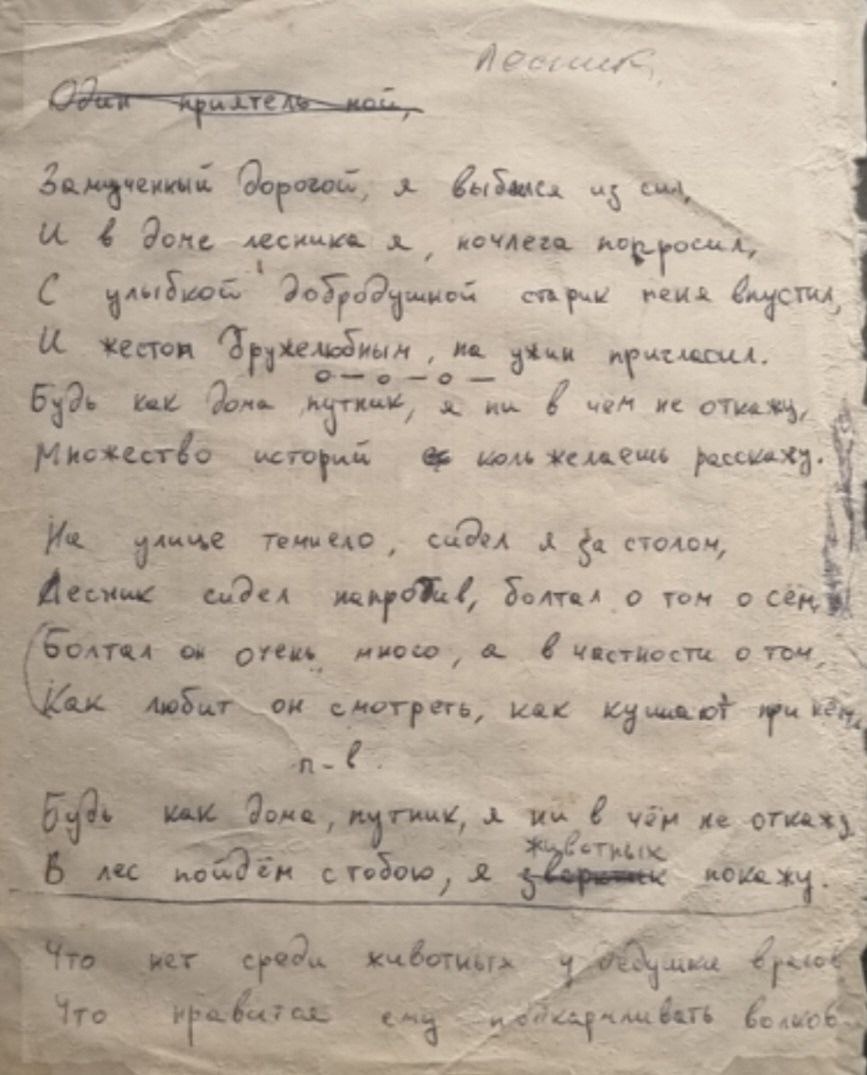 Лесник.
Один приятель мой,
Замученный дорогой, я выбился из сил,
И в доме лесника я, ночлега попросил,
С улыбкой добродушной старик меня впустил,
И жестом дружелюбным, на ужин пригласил.
о — о — о —
Будь как дома путник, я ни в чем не откажу,
Множество историй коль желаешь расскажу.
На улице темнело, сидел я за столом,
Лесник сидел напротив, болтал о том о сём,
Болтал он очень много, а в частности о том,
Как любит он смотреть, как кушают при нём.
п-в.
Будь как дома, путник, я ни в чём не откажу
животных
В лес пойдём с тобою, я зверюшек покажу.
Что нет среди животных у дедушки врагов
Что нравится ему подкармливать волков